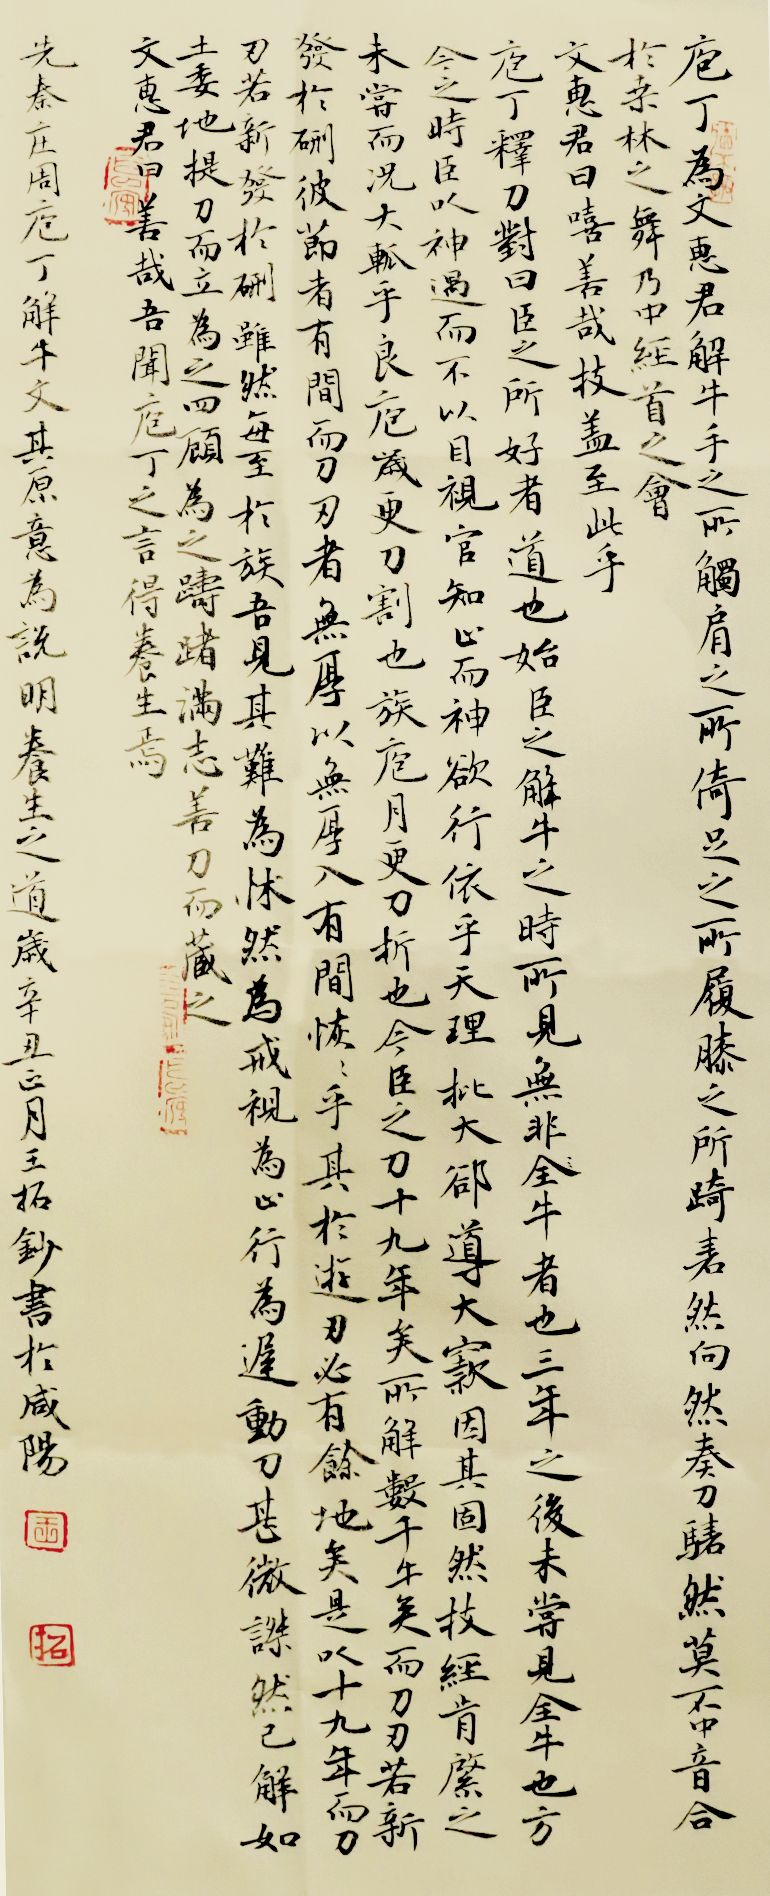 庖丁為文惠君解牛手之所觸肩之所倚足之所履膝之所踦砉然向然奏刀騞然莫不中音合
於桑林之舞乃中經首之會
文惠君曰嘻善哉技蓋至此乎
庖丁釋刀對曰臣之所好者道也始臣之解牛之時所見無非全牛者也三年之後未嘗見全牛也方
今之時臣以神遇而不以目視官知止而神欲行依乎天理批大郤導大窾因其固然技經肯綮之
未嘗而況大軱乎良庖歲更刀割也族庖月更刀折也今臣之刀十九年矣所解數千牛矣而刀刃若新
發於硎彼節者有間而刀刃者無厚以無厚入有間恢〻乎其於遊刃必有餘地矣是以十九年而刀
刃若新發於硎雖然每至於族吾見其難為怵然為戒視為止行為遲動刀甚微謋然已解如
土委地提刀而立為之四顧為之躊躇滿志善刀而藏之
文惠君曰善哉吾聞庖丁之言得養生焉
先秦庄周庖丁解牛文其原意為說明養生之道歲辛丑正月王拓鈔書於咸陽
王
拓